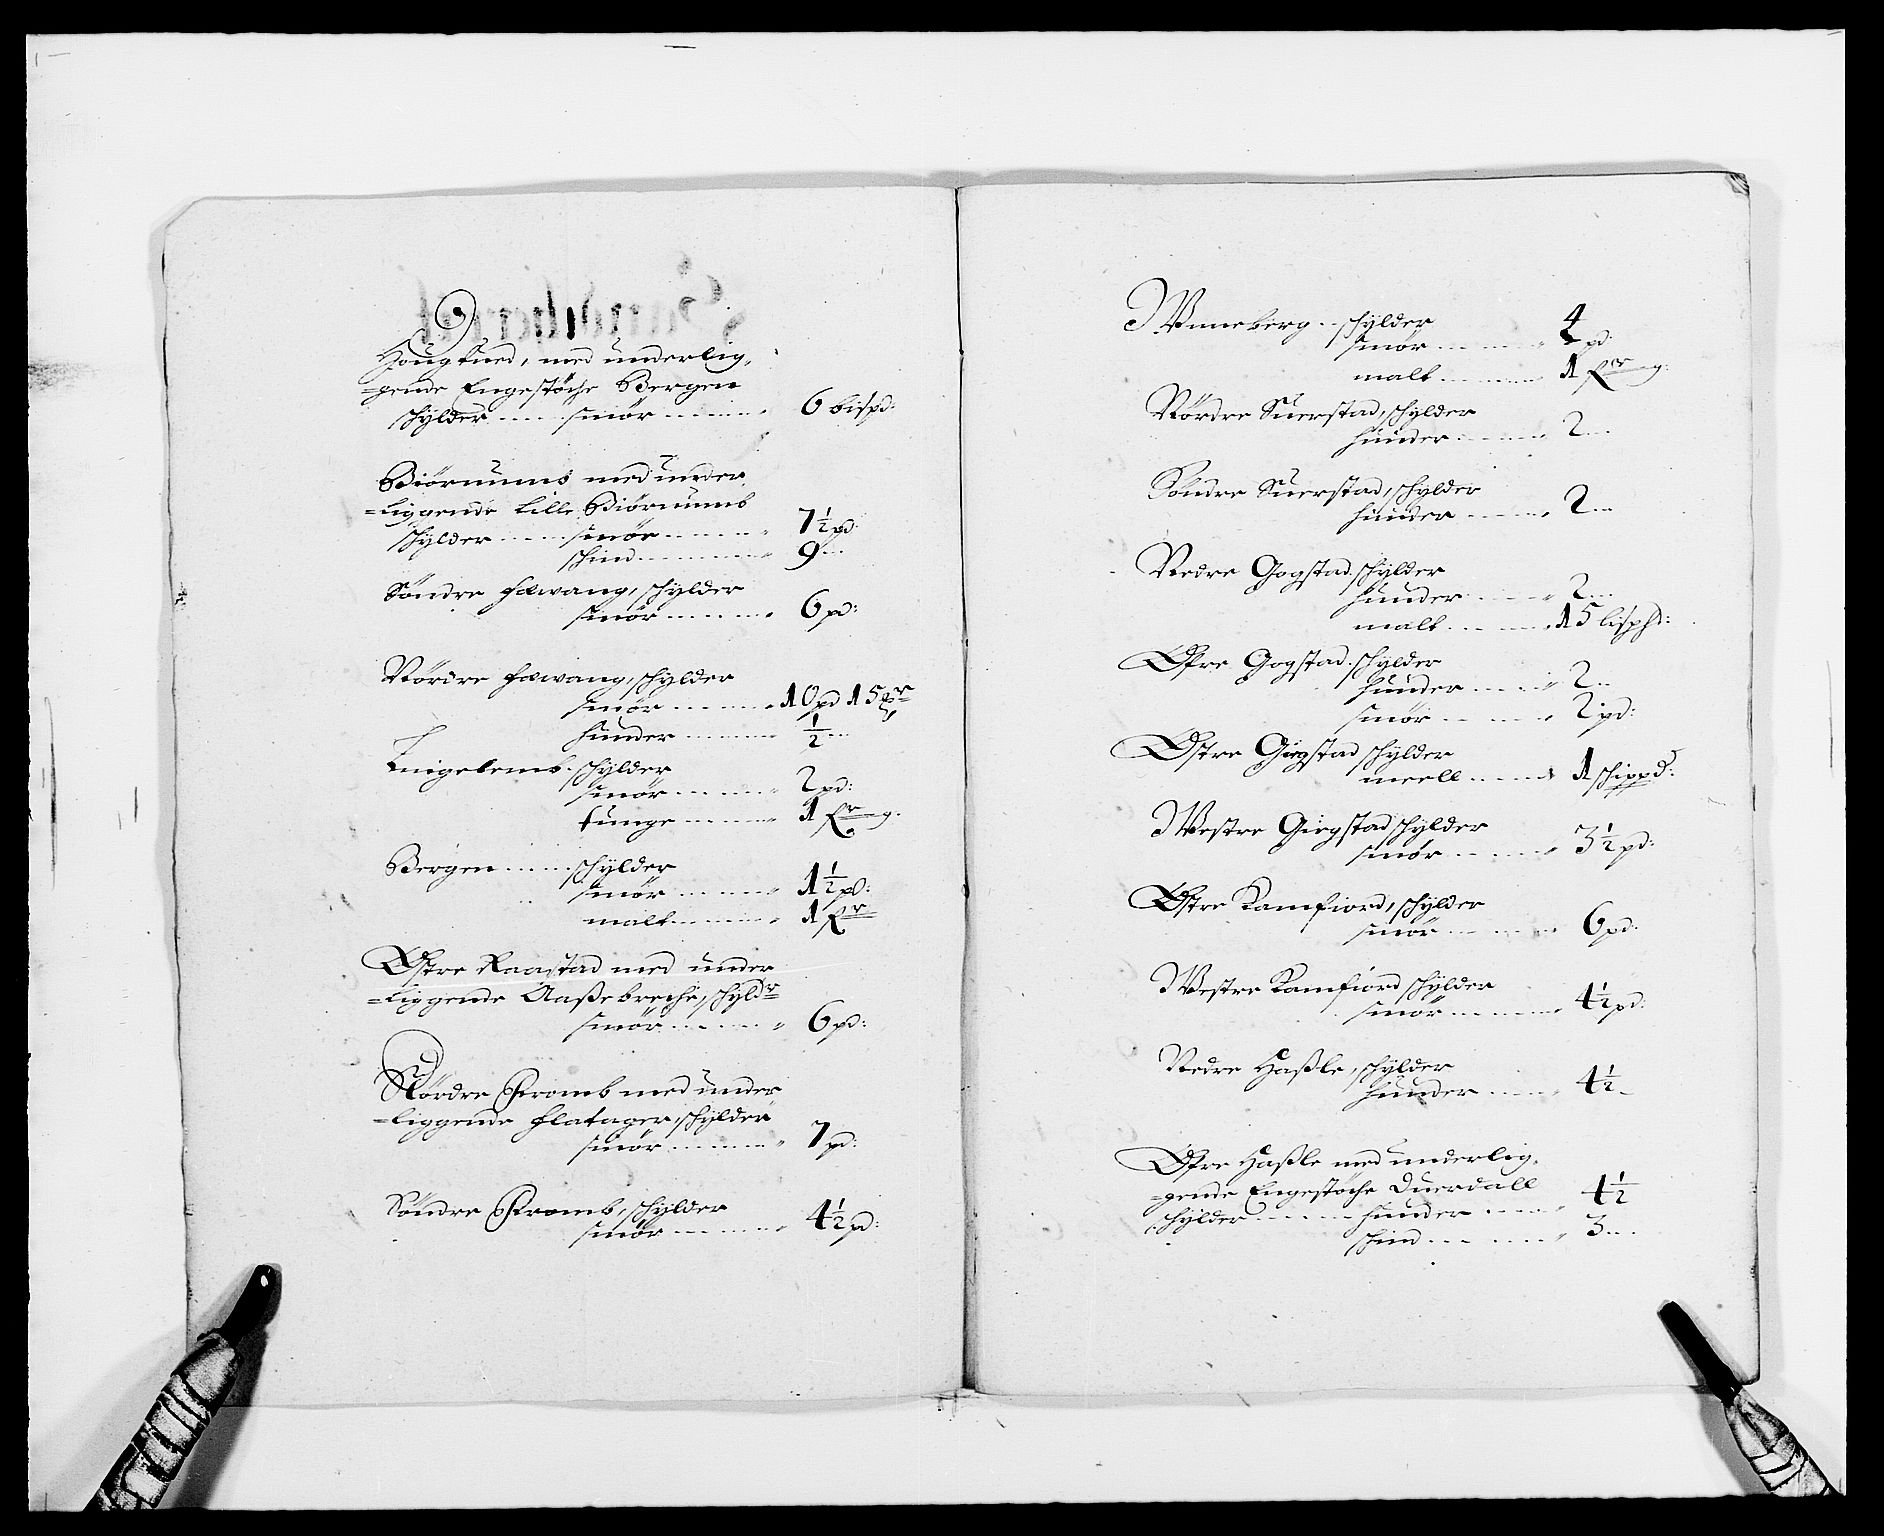 Hougtued, med underlig,
=gende Engestöche Bergen
schylder ..... smör ....... 6 bispd:
Biörnums med under
=liggende Lille Biörnumb
schylder ..... smör ....... 7½ pd:
schind ....... 9 ...
Söndre Fæwang, schylder
smör ....... 6 pd:
Nördre Fæwang, schylder
smör ....... 10 pd 15
hunder ....... ½ ...
schylder
smör ....... 2 pd:
tunge ....... 1
Bergen ....... schylder
smör ....... 1½ pd:
malt ....... 1
Østre Raastad med under
=liggende Aaßebreche, schyldr
smör ....... 6 pd:
Nördre Fromb med under
=liggende Flatager, schylder
smör ....... 7 pd:
Söndre Fromb, schylder
smör ....... 4½ pd:
Winneberg .. schylder 4
smör ....... 2 pd:
malt ....... 1
Nördre Suerstad, schylder
hunder ....... 2 ...
Söndre Suerstad, schylder
hunder ....... 2 ...
Nedre Gogstad schylder
hunder ....... 2 ...
malt ....... 15 lisphd:
Øfre Gogstad schylder
hunder ....... 2 ...
smör ....... 2 pd:
Østre Giegstad schylder
meell ....... 1 schippd:
Westre Giegstad schylder
smör ....... 3½ pd:
Østre Kamfiord, schylder
smör ....... 6 pd:
Westre Kamfiord schylder
smör ....... 4½ pd:
Nedre Haßle, schylder
hunder ....... 4½ ..
Øfre Haßle med underlig,
=gende Engestöche Duerdall
schylder ....... hunder ....... 4½
schind ....... 3 ...